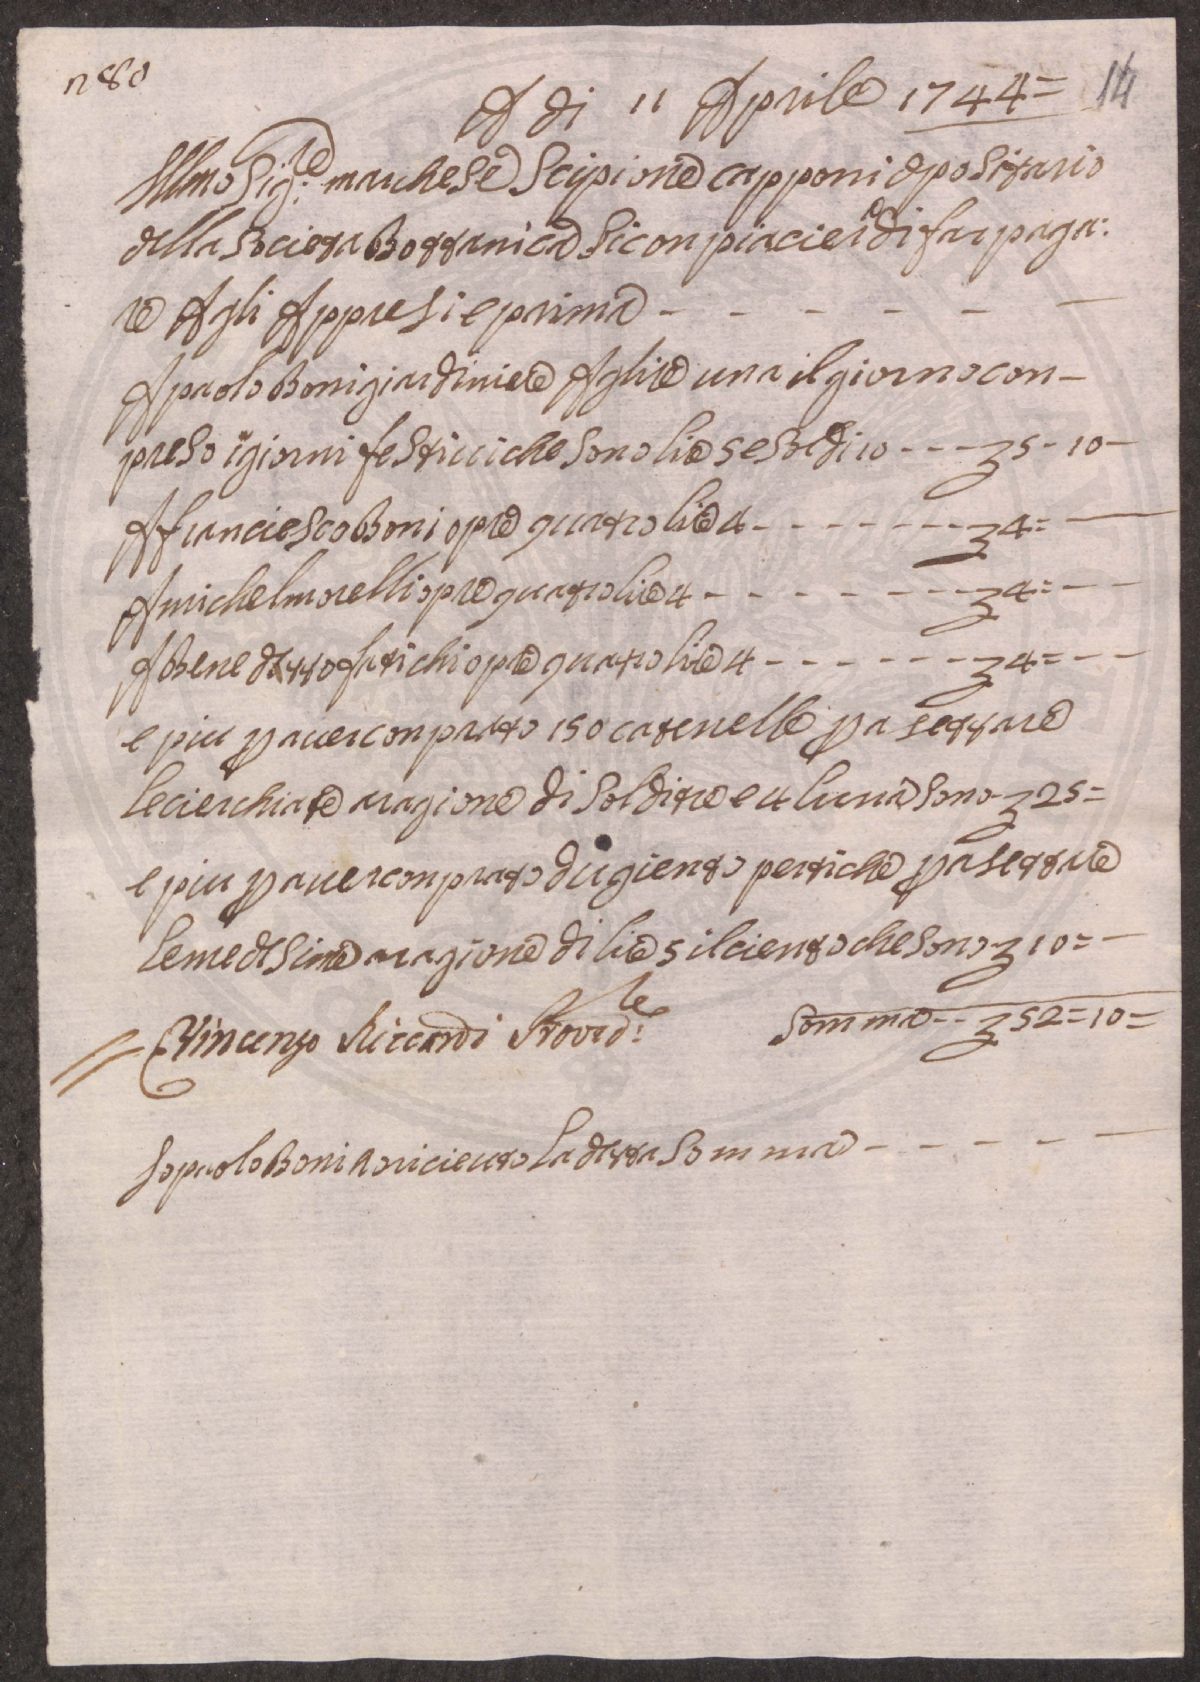 n 80
A di 11 Aprile 1744= 14
Illmo Sig:re marchese Scipione capponi dpositario
della Societa Bottanica Si conpiacierà di far paga:
re Agli Appresi e prima - - - - - -
A paolo Boni giardiniere A lire una il giorno con-
preso i giorni festivi che sono lire 5 e soldi 10 - - - ʒ 5 - 10 -
A franciesco Boni opre quatro lire 4 - - - - - - - ʒ 4= -
A michel morelli opre quatro lire 4 - - - - - - - - ʒ 4= - -
A Benedetto fatichi opre quatro lire 4 - - - - - - - ʒ 4= - -
e piu p aver conprato 150 catenelle p asettare
le cierchiate a ragione di soldi tre e 4 luna sono ʒ 25=
e piu p aver conprato dugiento pertiche p asettare
le medesime a ragione di lire 5 il ciento che sono ʒ 10= -
Vincenzo Riccardi Proved:re Somma - - ʒ 52=10=
Io paolo Boni o riceuto la detta Somma - - - - - -